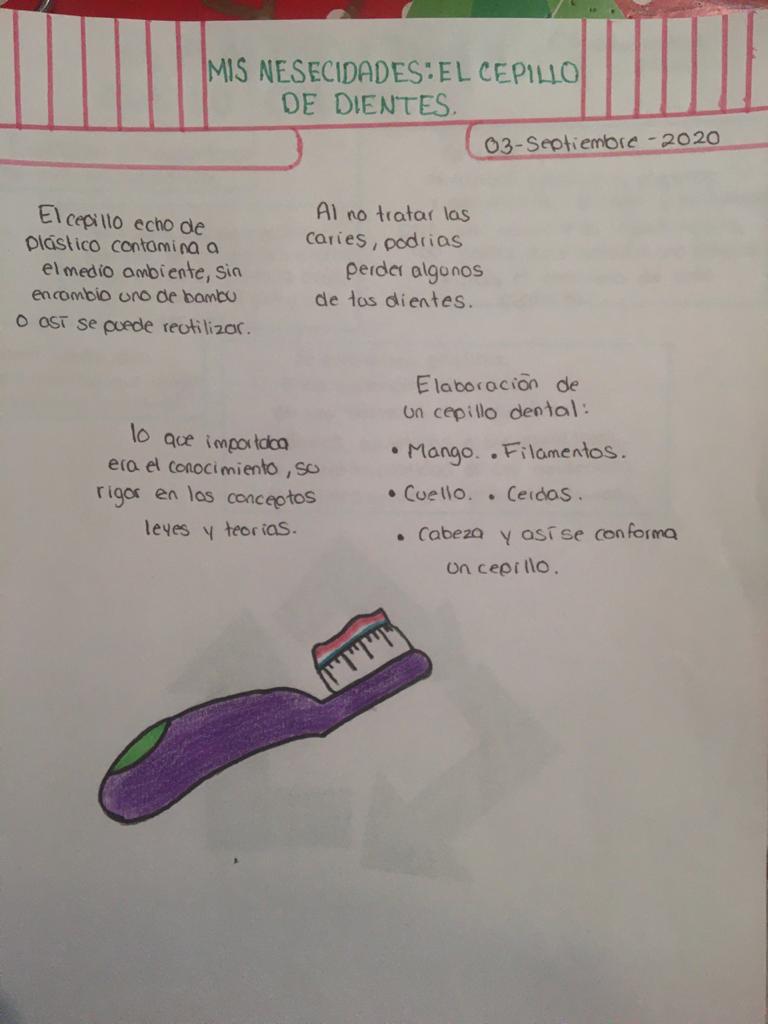 MIS NESECIDADES: EL CEPILLO
DE DIENTES.
03-Septiembre-2020
El cepillo echo de
plástico contamina a
el medio ambiente, sin
encambio uno de bambu
o así se puede reutilizar.
Al no tratar las
caries, podrias
perder algunos
de tus dientes.
lo que importaba
era el conocimiento, su
rigor en los conceptos
leyes y teorias.
Elaboración de
un cepillo dental:
• Mango. • Filamentos.
• Cuello. • Cerdas.
• Cabeza y así se conforma
un cepillo.